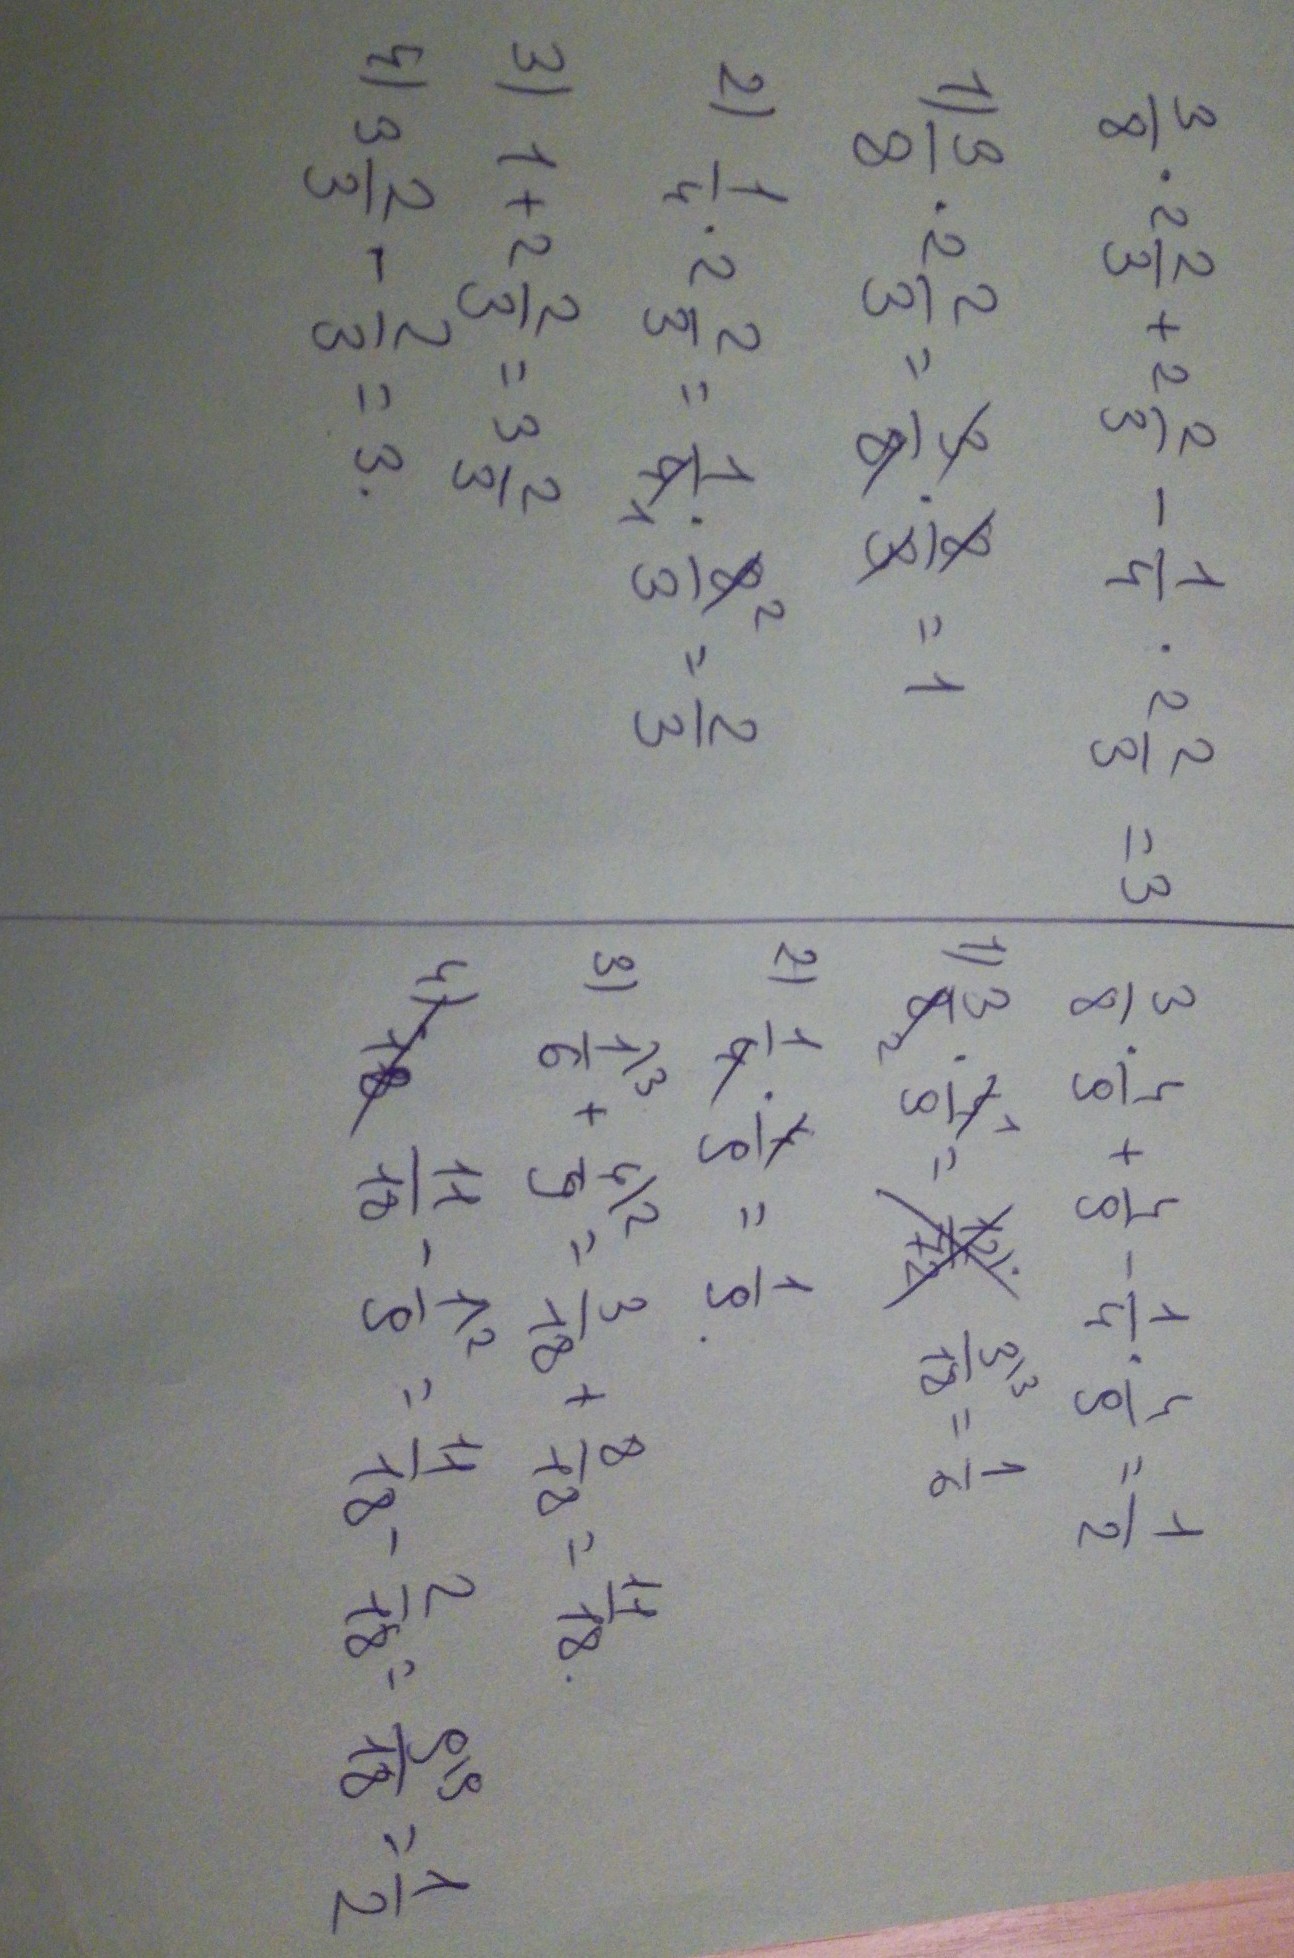 3/8 · 2 2/3 + 2 2/3 - 1/4 · 2 2/3 = 3
1) 3/8 · 2 2/3 = 3/8 · 8/3 = 1
2) 1/4 · 2 2/3 = 1/4 1 · 8 2/3 = 2/3
3) 1 + 2 2/3 = 3 2/3
4) 3 2/3 - 2/3 = 3.
3/8 · 4/9 + 4/9 - 1/4 · 4/9 = 1/2
1) 3/8 2 · 4 1/9 = 3\3/18 = 1/6
2) 1/4 · 4/9 = 1/9.
3) 1\3/6 + 4\2/9 = 3/18 + 8/18 = 11/18.
4) 11/18 - 1\2/9 = 11/18 - 2/18 = 9\9/18 = 1/2